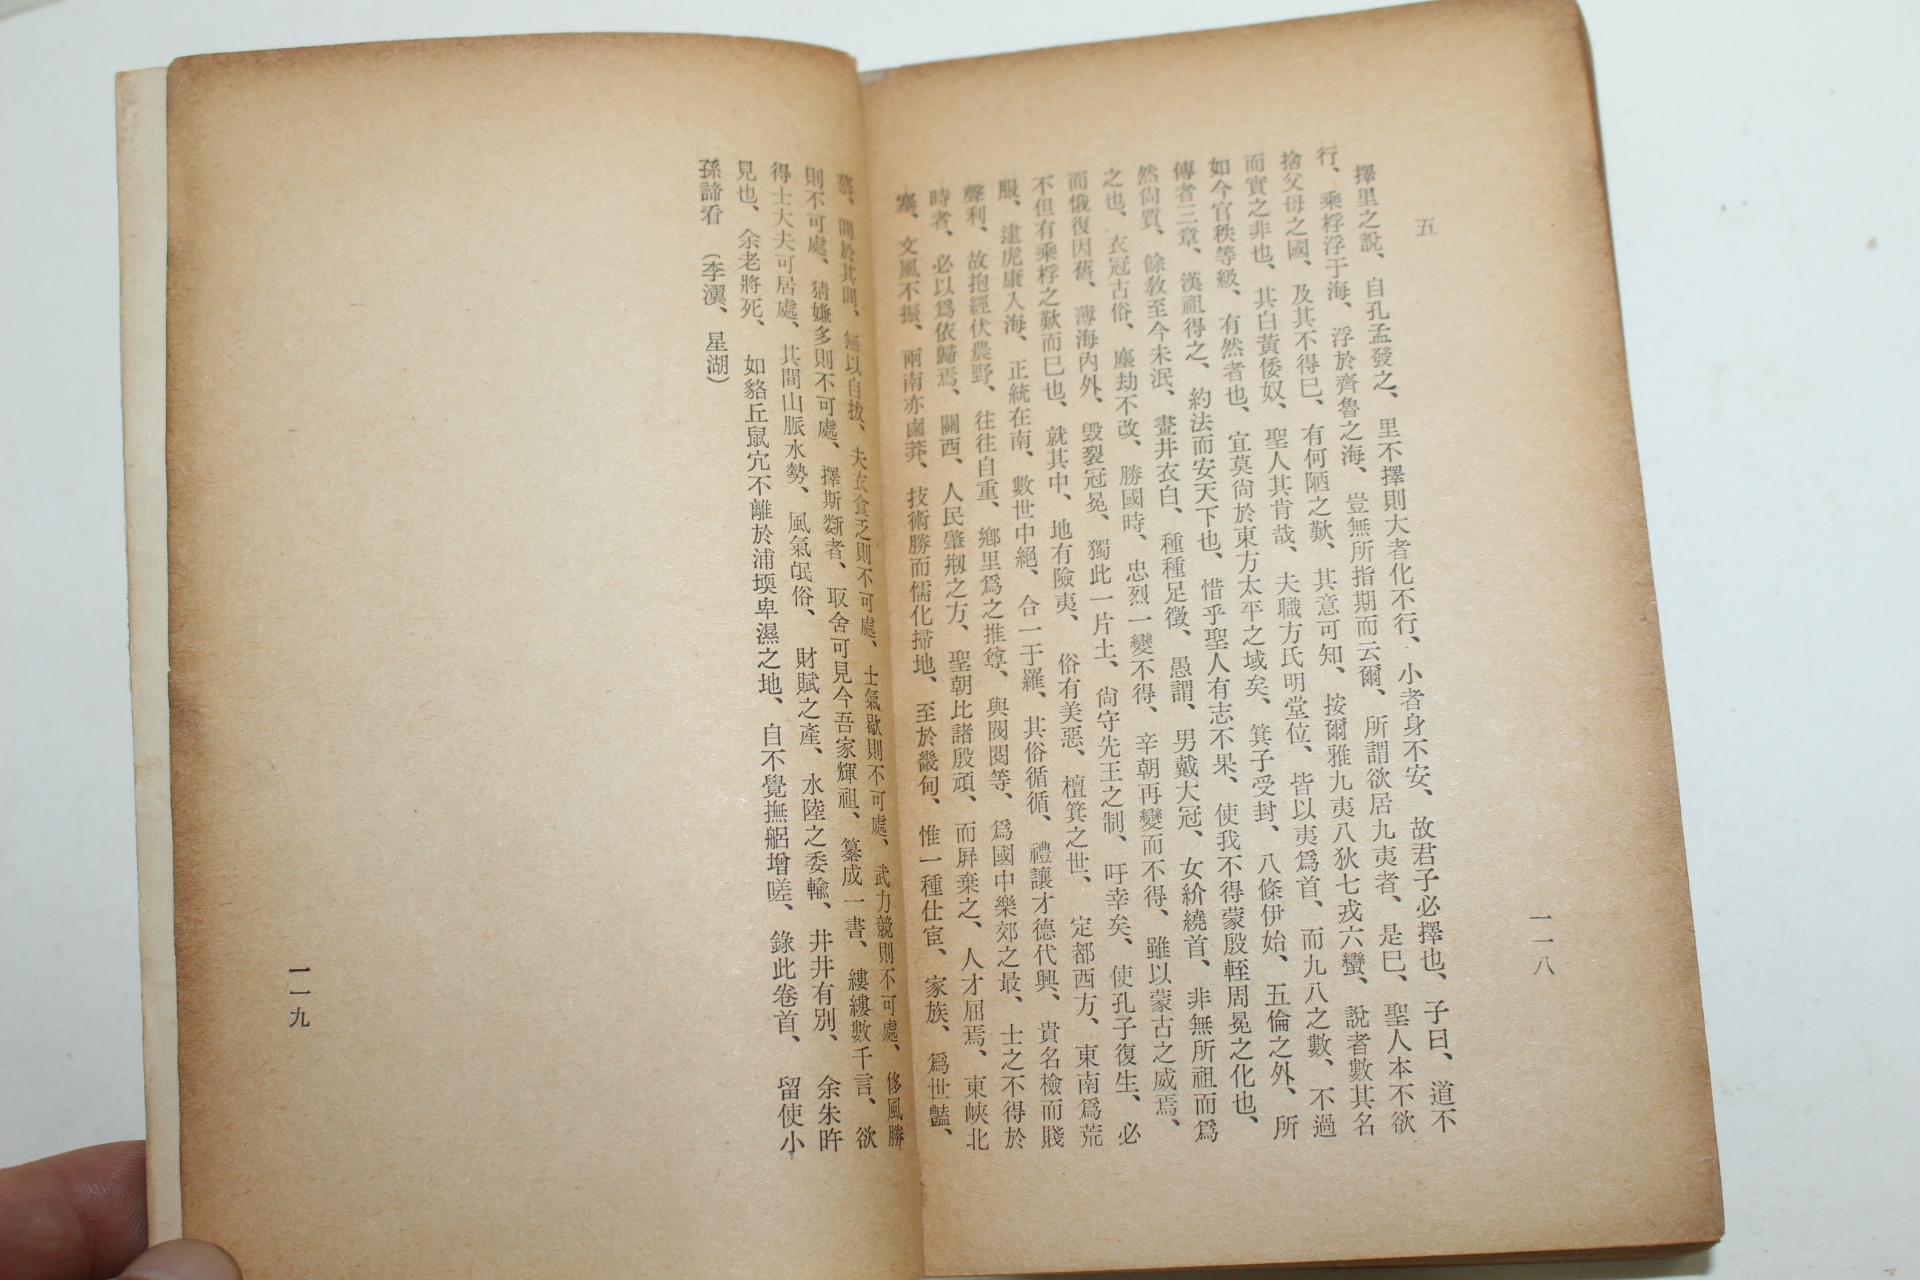 五
擇里之說、自孔孟發之、里不擇則大者化不行、小者身不安、故君子必擇也、子曰、道不
行、乘桴浮于海、浮於齊魯之海、豈無所指期而云爾、所謂欲居九夷者、是巳、聖人本不欲
捨父母之國、及其不得巳、有何陋之歎、其意可知、按爾雅九夷八狄七戎六蠻、說者數其名
而實之非也、其白黃倭奴、聖人其肯哉、夫職方氏明堂位、皆以夷爲首、而九八之數、不過
如今官秩等級、有然者也、宜莫尙於東方太平之域矣、箕子受封、八條伊始、五倫之外、所
傳者三章、漢祖得之、約法而安天下也、惜乎聖人有志不果、使我不得蒙殷輊周冕之化也、
然尙質、餘敎至今未泯、畫井衣白、種種足徵、愚謂、男戴大冠、女紒繞首、非無所祖而爲
之也、衣冠古俗、塵劫不改、勝國時、忠烈一變不得、辛朝再變而不得、雖以蒙古之威焉、
而俄復因舊、薄海內外、毁裂冠冕、獨此一片土、尙守先王之制、吁幸矣、使孔子復生、必
不但有乘桴之歎而巳也、就其中、地有險夷、俗有美惡、檀箕之世、定都西方、東南爲荒
服、逮虎康入海、正統在南、數世中絕、合一于羅、其俗循循、禮讓才德代興、貴名檢而賤
聲利、故抱經伏農野、往往自重、鄕里爲之推尊、與閥閱等、爲國中樂郊之最、士之不得於
時者、必以爲依歸焉、關西、人民肇剏之方、聖朝比諸殷頑、而屛棄之、人才屈焉、東峽北
塞、文風不振、兩南亦鹵莽、技術勝而儒化掃地、至於畿甸、惟一種仕宦、家族、爲世豔、
一一八
慕、間於其間、無以自拔、夫衣食乏則不可處、士氣歇則不可處、武力競則不可處、侈風勝
則不可處、猜嫌多則不可處、擇斯斳者、取舍可見今吾家輝祖、纂成一書、縷縷數千言、欲
得士大夫可居處、其間山脈水勢、風氣氓俗、財賦之產、水陸之委輸、井井有別、余朱昨
見也、余老將死、如貉丘鼠宂不離於浦堧卑濕之地、自不覺撫躬增嗟、錄此卷首、留使小
孫諦看 （李瀷、星湖）
一一九